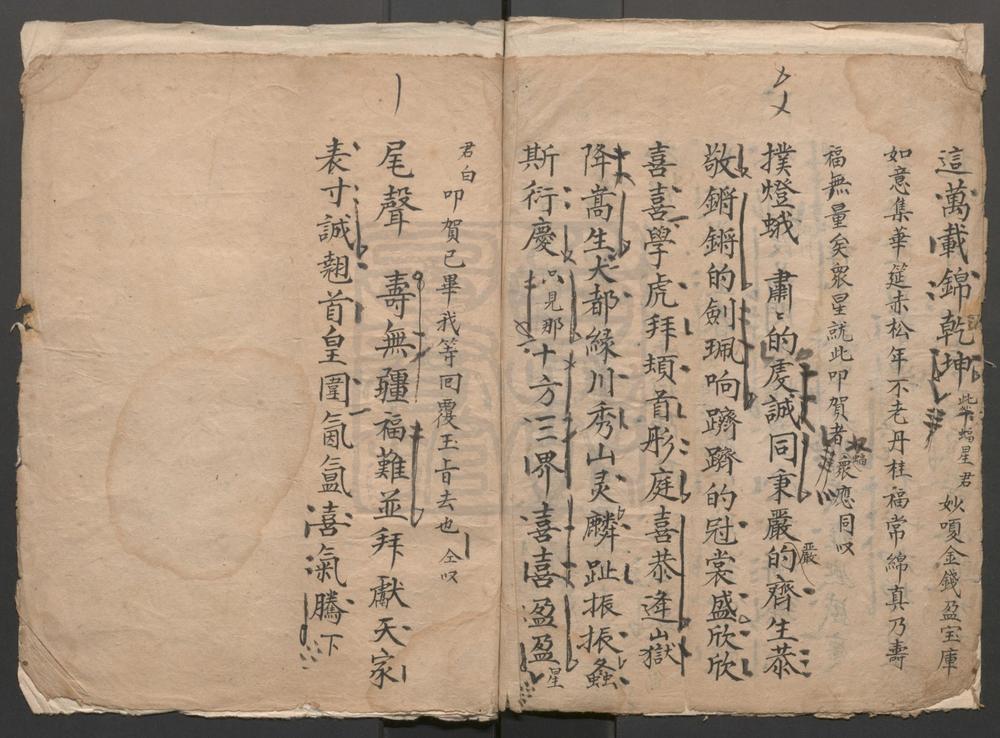 這萬載錦乾坤 此下蝠星君 妙嗄金錢盈宝庫
如意集華筵赤松年不老丹桂福常綿真乃壽
福無量矣衆星就此叩賀者 衆應同哎
撲燈蛾 肅〻的虔誠同秉嚴的齊生恭
嚴
敬鏘鏘的劍珮响躋躋的冠裳盛欣欣
喜喜學虎拜頫首彤庭喜恭逢山嶽
降嵩生大都緑川秀山灵麟趾振振螽
斯衍慶 只見那十方三界喜喜盈盈 星
君白 叩賀已畢我等回覆玉㫖去也 仝哎
尾聲 壽無疆福難並拜獻天家
表寸誠翹首皇圍氤氳喜氣騰 下